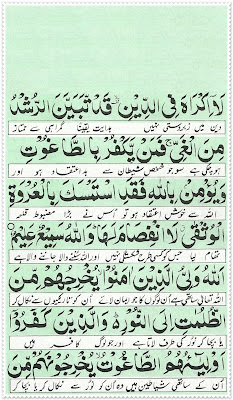 لَآ اِکْرَاهَ فِی الدِّیْنِ قَدْ تَّبَیَّنَ الرُّشْدُ
دین میں زبردستی نہیں ہدایت یقیناً گمراہی سے ممتاز
مِنَ الْغَیِّ فَمَنْ یَّکْفُرْ بِالطَّاغُوْتِ
ہوچکی ہے سو جو شخص شیطان سے بداعتقاد ہو اور
وَیُؤْمِنْۢ بِاللّٰهِ فَقَدِ اسْتَمْسَكَ بِالْعُرْوَةِ
اللہ سے خوش اعتقاد ہو تو اس نے بڑا مضبوط حلقہ
الْوُثْقٰی لَا انْفِصَامَ لَهَا وَاللّٰهُ سَمِیْعٌ عَلِیْمٌ
تھام لیا جس کو کسی طرح شکستگی نہیں اور اللہ سننے والا جاننے والا ہے
اَللّٰهُ وَلِیُّ الَّذِیْنَ اٰمَنُوْا یُخْرِجُهُمْ مِّنَ
اللہ تعالیٰ ساتھی ہے اُن لوگوں کا جو ایمان لائے اُن کو تاریکیوں سے نکال کر
الظُّلُمٰتِ اِلَی النُّوْرِ وَالَّذِیْنَ کَفَرُوْۤا
یا بچا کر نور کی طرف لاتا ہے اور جو لوگ کافر ہیں
اَوْلِیٰٓــُٔهُمُ الطَّاغُوْتُ یُخْرِجُوْنَهُمْ مِّنَ
اُن کے ساتھی شیاطین ہیں وہ اُن کو نور سے نکال کر یا بچا کر